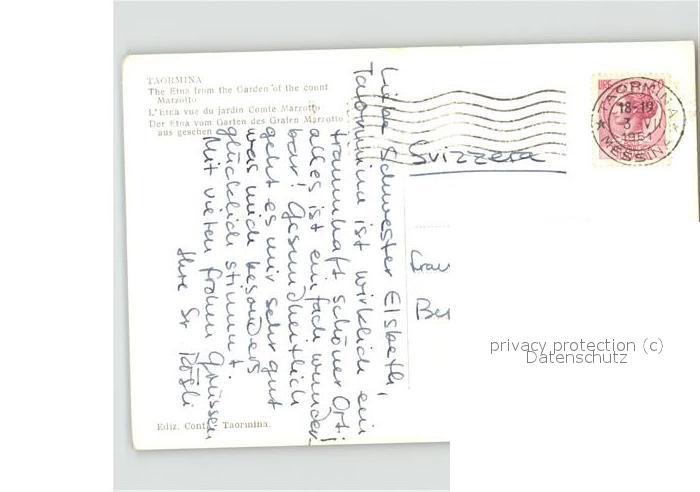 TAORMINA
The Etna from the Garden of the count
Marzotto
L'Etna vue du jardin Comte Marzotto
Der Etna vom Garten des Grafen Marzotto
aus gesehen
Liebe Schwester Elsbeth,
Taormina ist wirklich ein
traumhaft schöner Ort!
alles ist einfach wunder-
bar! Gesundheitlich
geht es mir sehr gut
was mich besonders
glücklich stimmt.
Mit vielen frohen Grüssen
Ihre Sr
Svizzera
LIRE
TAORMINA
18-19
3 VI
MESSINA
Frau
Be
privacy protection (c)
Datenschutz
Ediz. Taormina.